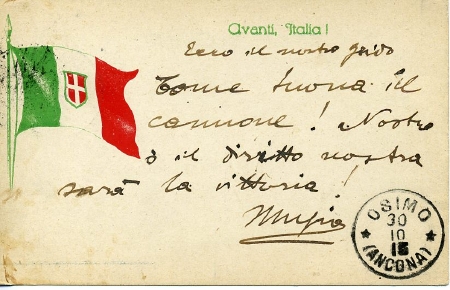 Avanti, Italia!
Ecco il nostro grido
Come tuona il
cannone! Nostro
è il diritto nostra
sarà la vittoria!
OSIMO
30
10
15
(ANCONA)